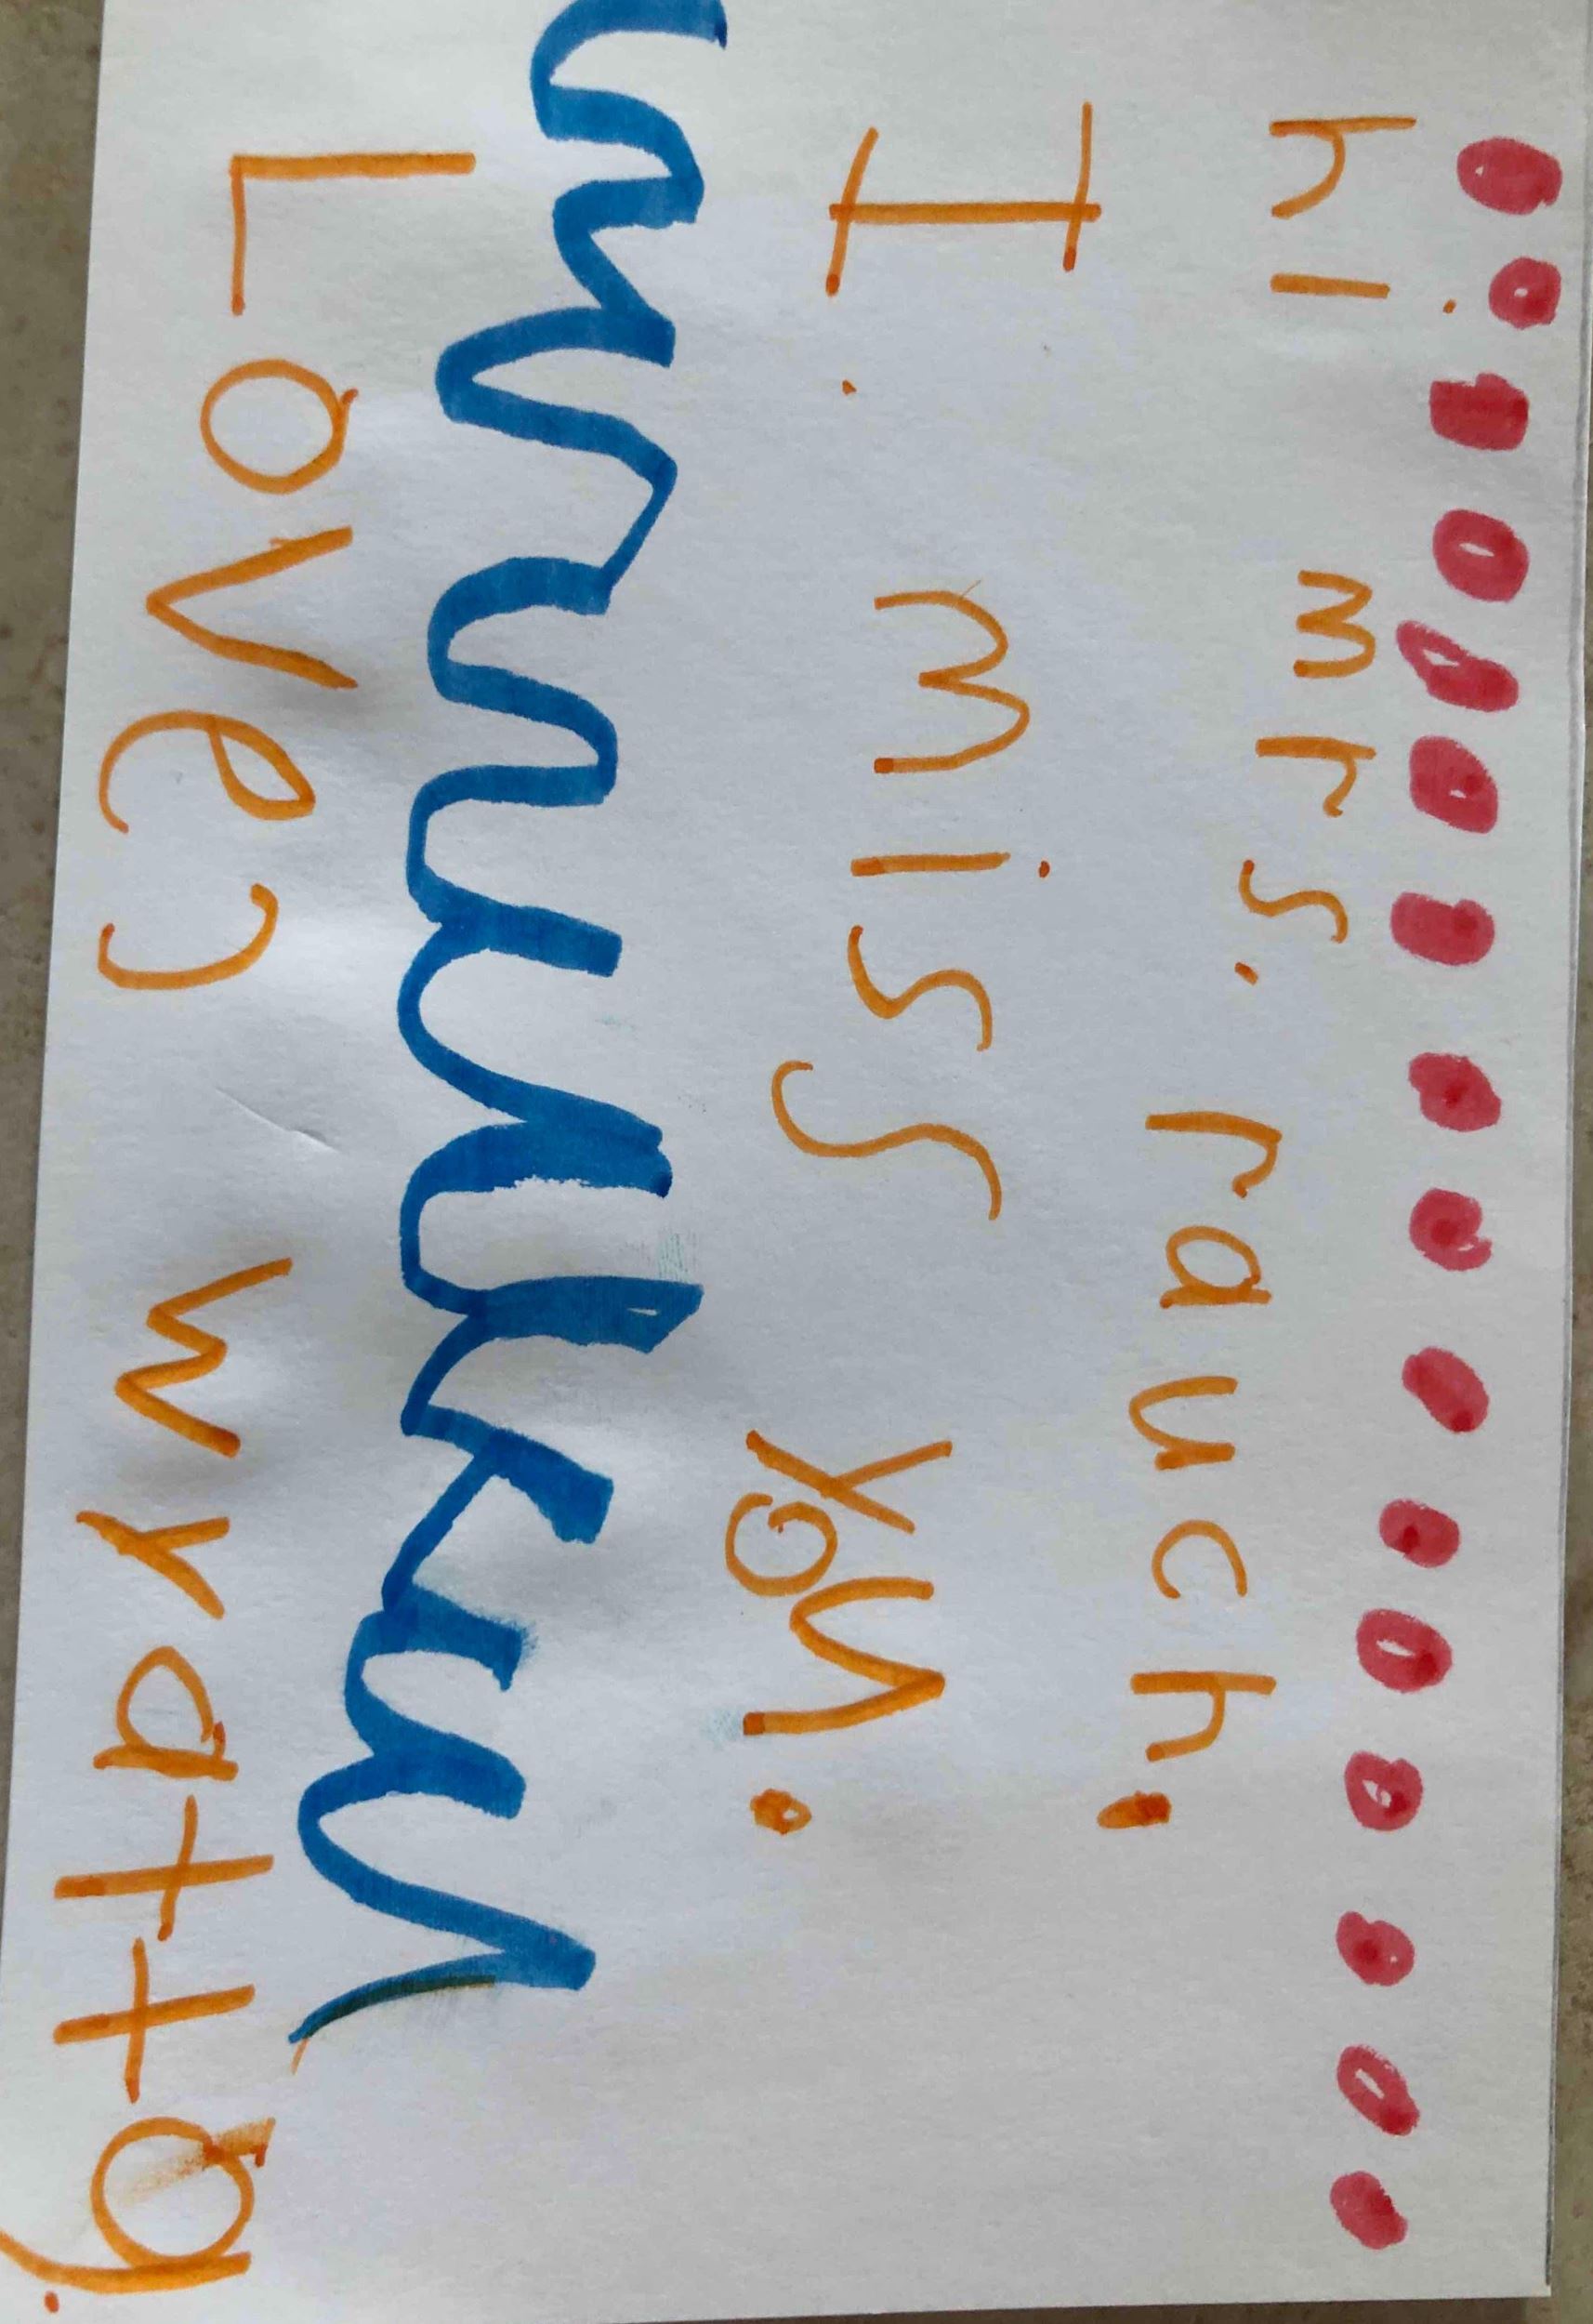 hi mrs. rauch.
I. miss you.
Love, wyatt g.